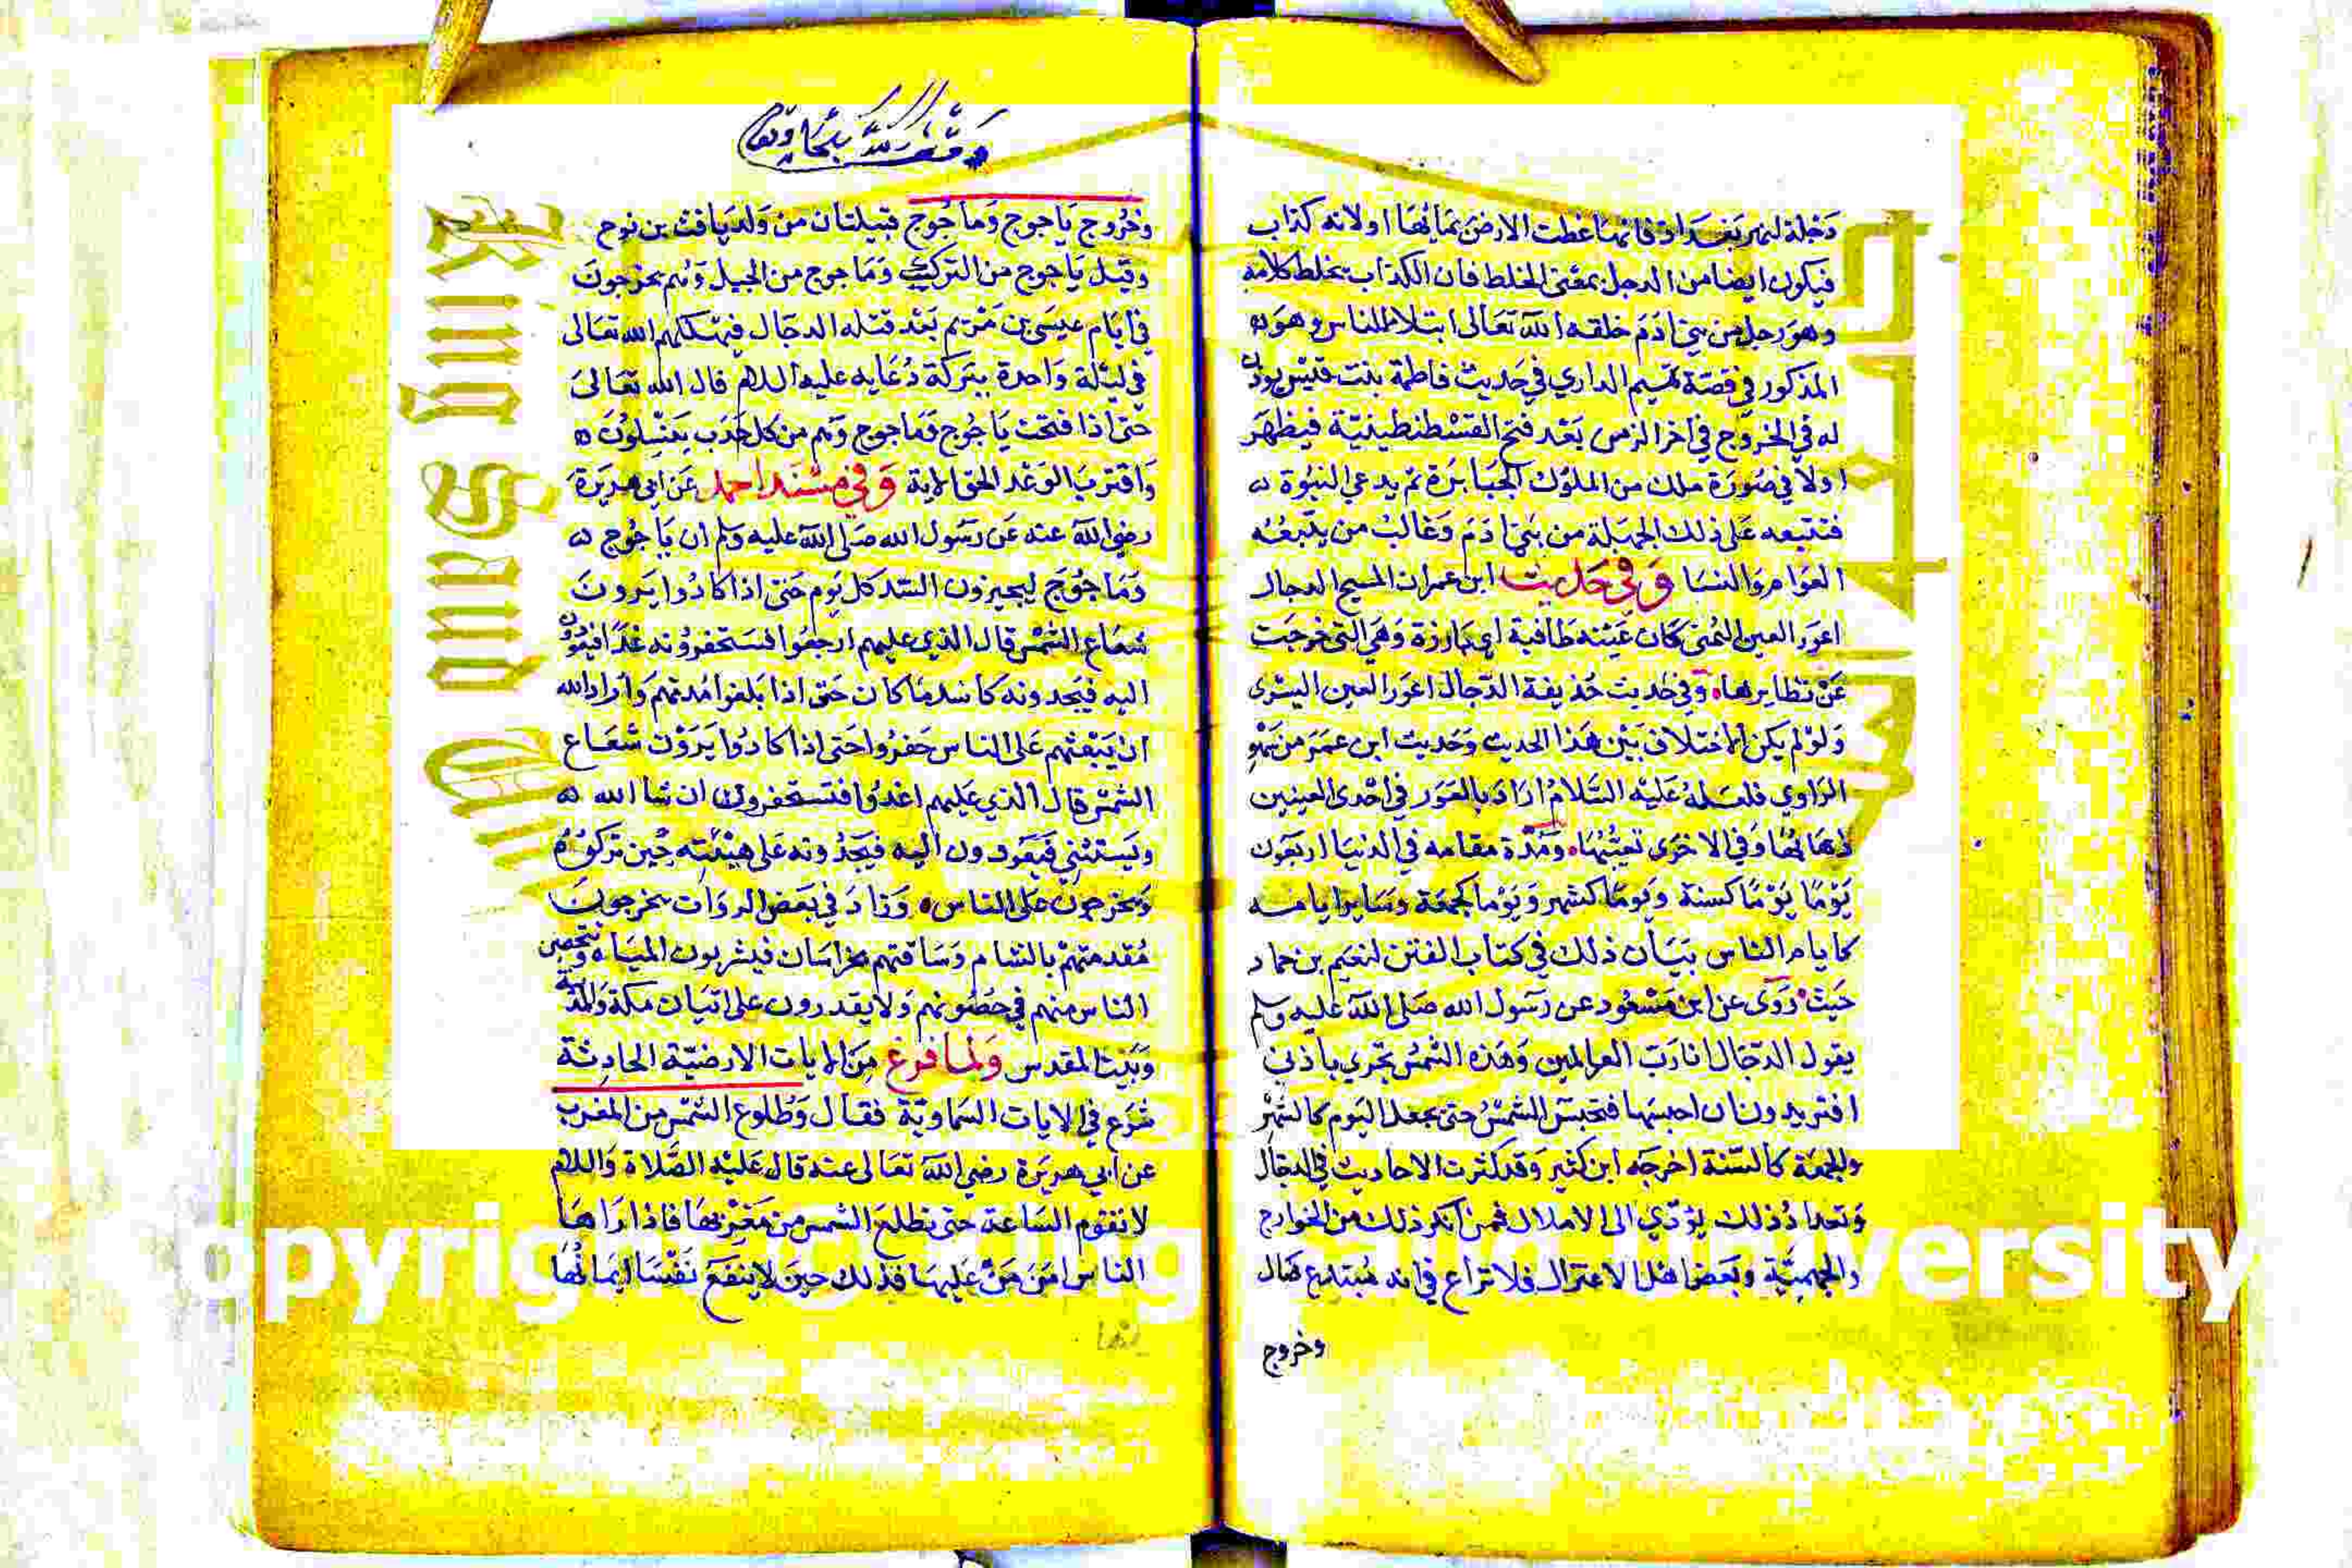 دجلة لنهر بغداد فانها غطت الارض بمائها اولانه كذاب
فيكون ايضا من الدجل بمعنى الخلط فان الكذاب يخلط كلامه
وهو رجل من بني ادم خلقه الله تعالى ابتلا للناس وهو
المذكور في قصة تميم الداري في حديث فاطمة بنت قيس يوذن
له في الخروج في اخر الزمن بعد فتح القسطنطينية فيظهر
اولا في صورة ملك من الملوك الجبابرة ثم يدعي النبوة
فتتبعه على ذلك الجهلة من بني ادم وغالب من يتبعه
العوام والنسا وفي حديث ابن عمران المسيح الدجال
اعور العين اليمنى كان عينه طافية اي بارزة وهي التي خرجت
عن نظايرها وفي حديث حذيفة الدجال اعور العين اليسرى
ولو لم يكن الاختلاف بين هذا الحديث وحديث ابن عمر من سهو
الراوي فلعله عليه السلام اراد بالعور في احدى العينين
ذهابها وفي الاخرى تعيبها ومدة مقامه في الدنيا اربعون
يوما يوما كسنة ويوما كشهر ويوما كجمعة وساير ايامه
كايام الناس بيان ذلك في كتاب الفتن لنعيم بن حماد
حيث روى عن ابن مسعود عن رسول الله صلى الله عليه وسلم
يقول الدجال انا رب العالمين وهذه الشمس تجري باذني
افتريدون ان احبسها فتحبس الشمس حتى يجعل اليوم كالشهر
والجمعة كالسنة اخرجه ابن كثير وقد كثرت الاحاديث في الدجال
وتعداد ذلك يؤدي الى الاملال فمن انكر ذلك من الخوارج
والجهمية وبعض اهل الاعتزال فلا نزاع في انه مبتدع ضال
وخروج
وخروج ياجوج وماجوج قبيلتان من ولد يافث بن نوح
وقيل ياجوج من الترك وماجوج من الجيل وهم يخرجون
في ايام عيسى بن مريم بعد قتله الدجال فيهلكهم الله تعالى
في ليلة واحدة ببركة دعايه عليه السلام قال الله تعالى
حتى اذا فتحت ياجوج وماجوج وهم من كل حدب ينسلون
واقترب الوعد الحق الاية وفي مسند احمد عن ابي هريرة
رضي الله عنه عن رسول الله صلى الله عليه وسلم ان ياجوج
وماجوج ليحفرون السد كل يوم حتى اذا كادوا يرون
شعاع الشمس قال الذي عليهم ارجعوا فستحفرونه غدا فيعودون
اليه فيجدونه كاشد ما كان حتى اذا بلغوا مدتهم واراد الله
ان يبعثهم على الناس حفروا حتى اذا كادوا يرون شعاع
الشمس قال الذي عليهم اغدوا فتستحفرون ان شا الله
ويستثني فيعودون اليه فيجدونه على هيئته حين تركوه
ويخرجون على الناس وزاد في بعض الروات يخرجون
مقدمتهم بالشام وساقتهم بخراسان فيشربون المياه ويتحصن
الناس منهم في حصونهم ولا يقدرون على اتيان مكة والمدينة
وبيت المقدس ولما فرغ من الايات الارضية الحادثة
شرع في الايات السماوية فقال وطلوع الشمس من المغرب
عن ابي هريرة رضي الله تعالى عنه قال عليه الصلاة والسلام
لا تقوم الساعة حتى تطلع الشمس من مغربها فاذا راها
الناس امن من عليها فذلك حين لا ينفع نفسا ايمانها
King Saud University
Copyright © King Saud University